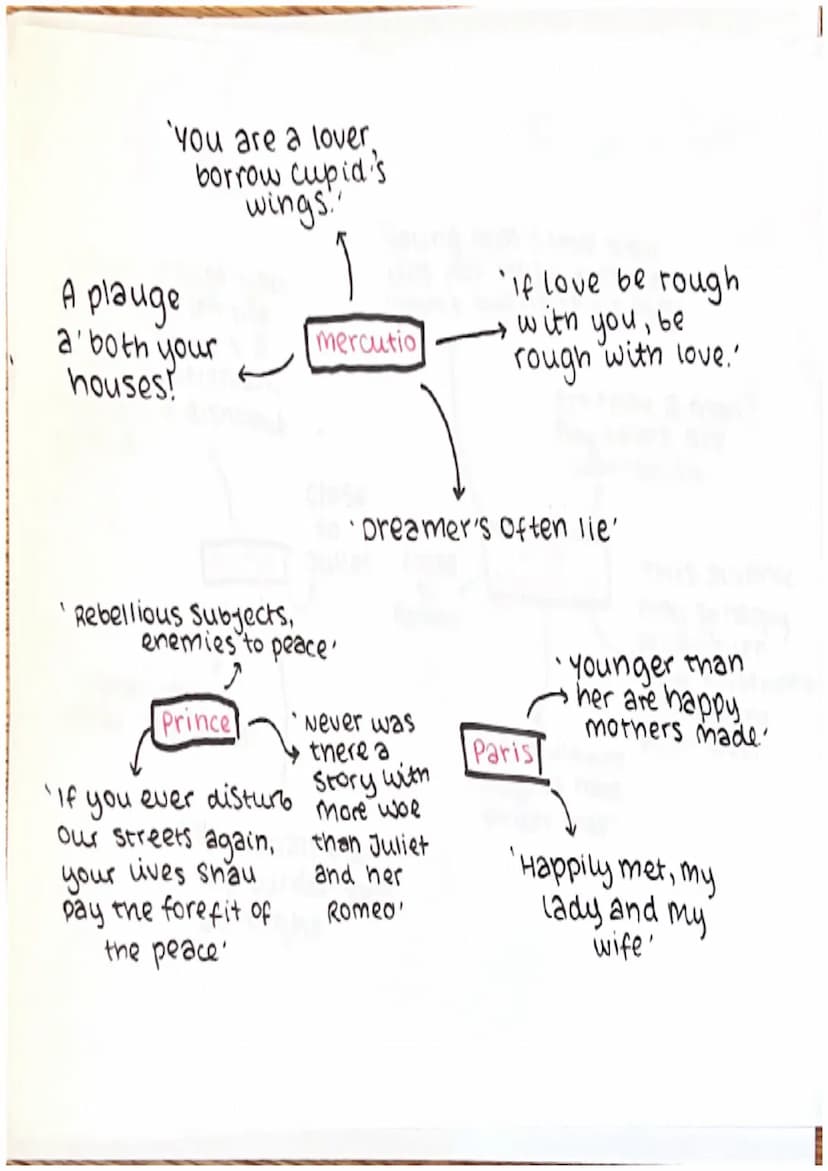 'You are a lover,
borrow cupid's
wings.'
A plauge
a' both your
houses!
mercutio
'if love be rough
with you, be
rough with love.'
'Dreamer's often lie'
'Rebellious Subjects,
enemies to peace'
Prince
'If you ever disturb
our streets again,
your lives shall
pay the forefit of
the peace'
'Never was
there a
story with
more woe
than Juliet
and her
Romeo'
Paris
'younger than
her are happy
mothers made.'
'Happily met, my
lady and my
wife'